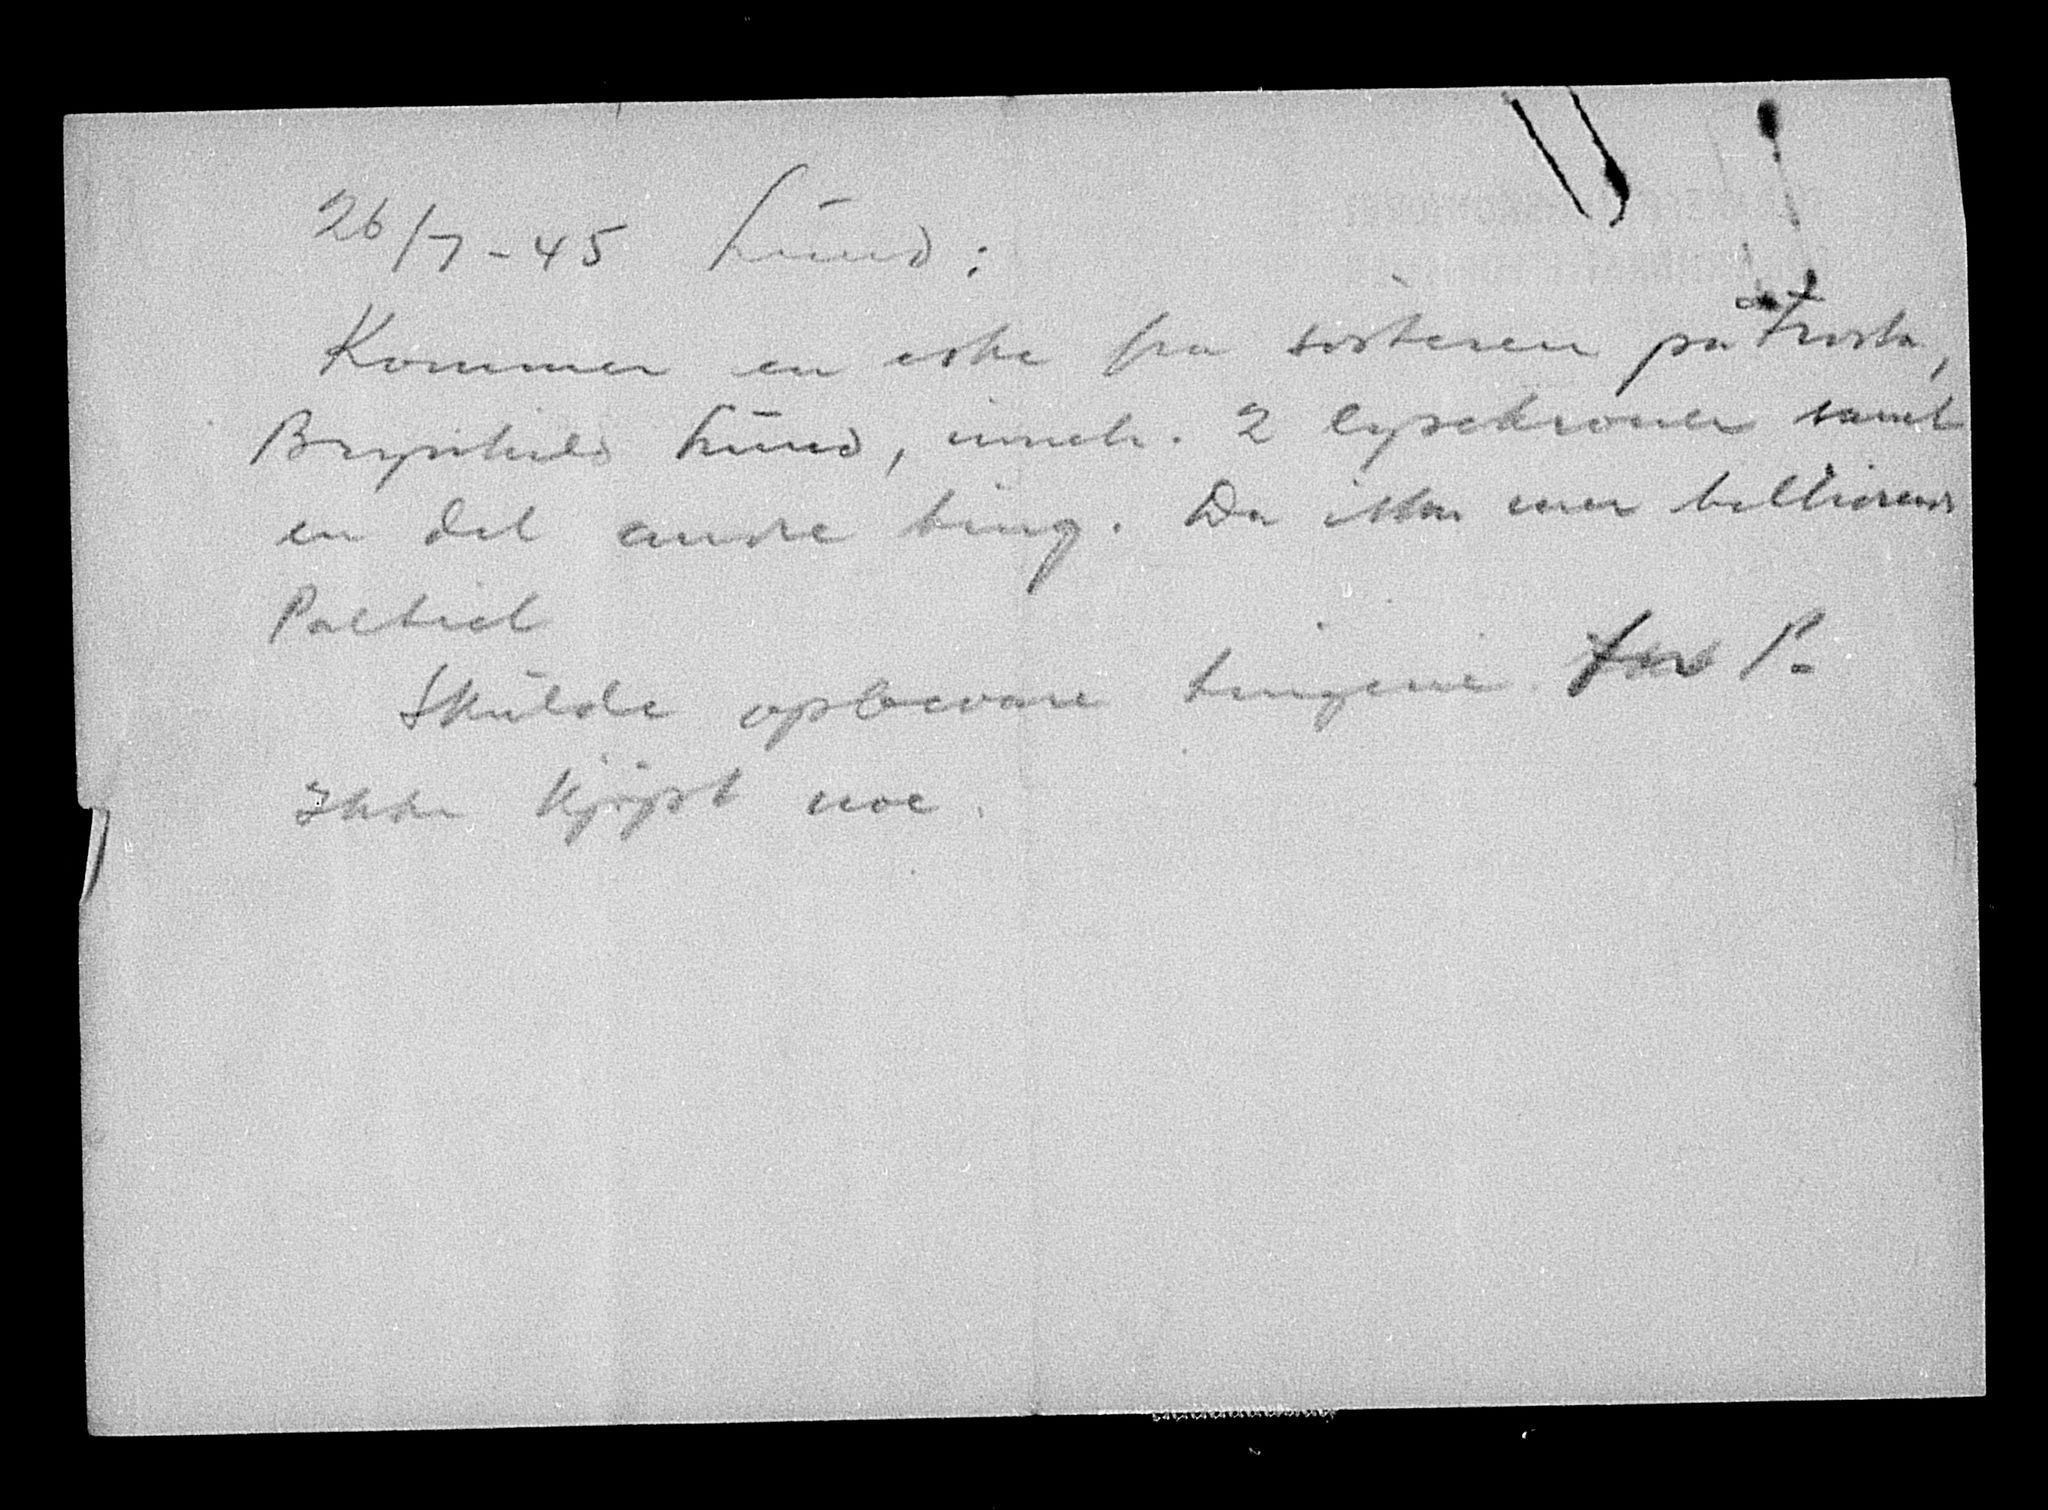 26/7-45 Lund:
Kommer en eske fra søsteren på Frosta,
Brynhild Lund, inneh. 2 lysekroner samt
en del andre ting. Da ikke mer
Paltiel
Skulde opbevare tingene for P.
Ikke kjøpt noe.